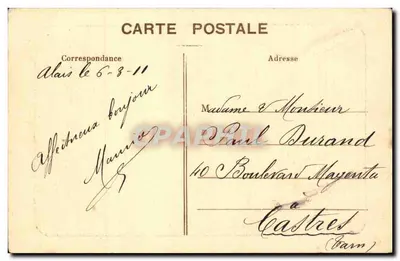 CARTE POSTALE
Correspondance
Adresse
Alais le 6-3-11
Affectueux bonjour
Madame & Monsieur
Paul Durand
40 Boulevard Magenta
à
Castres
(Tarn)